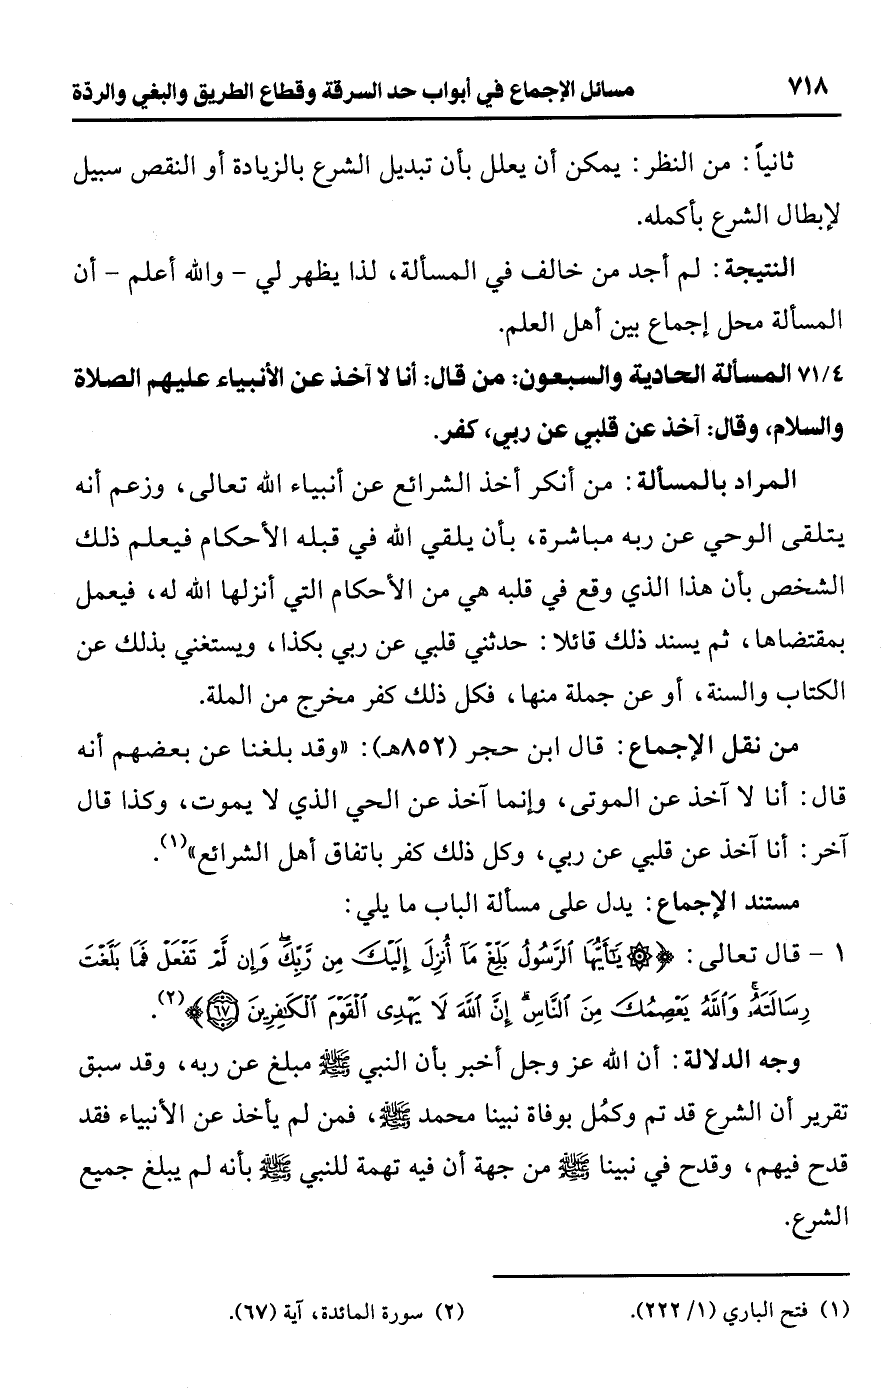 ٧١٨ مسائل الإجماع في أبواب حد السرقة وقطاع الطريق والبغي والردّة
ثانياً: من النظر: يمكن أن يعلل بأن تبديل الشرع بالزيادة أو النقص سبيل
لإبطال الشرع بأكمله.
النتيجة: لم أجد من خالف في المسألة، لذا يظهر لي - والله أعلم - أن
المسألة محل إجماع بين أهل العلم.
٧١/٤ المسألة الحادية والسبعون: من قال: أنا لا آخذ عن الأنبياء عليهم الصلاة
والسلام، وقال: آخذ عن قلبي عن ربي، كفر.
المراد بالمسألة: من أنكر أخذ الشرائع عن أنبياء الله تعالى، وزعم أنه
يتلقى الوحي عن ربه مباشرة، بأن يلقي الله في قبله الأحكام فيعلم ذلك
الشخص بأن هذا الذي وقع في قلبه هي من الأحكام التي أنزلها الله له، فيعمل
بمقتضاها، ثم يسند ذلك قائلا: حدثني قلبي عن ربي بكذا، ويستغني بذلك عن
الكتاب والسنة، أو عن جملة منها، فكل ذلك كفر مخرج من الملة.
من نقل الإجماع: قال ابن حجر (٨٥٢هـ): «وقد بلغنا عن بعضهم أنه
قال: أنا لا آخذ عن الموتى، وإنما آخذ عن الحي الذي لا يموت، وكذا قال
آخر: أنا آخذ عن قلبي عن ربي، وكل ذلك كفر باتفاق أهل الشرائع»(١).
مستند الإجماع: يدل على مسألة الباب ما يلي:
١ - قال تعالى: ﴿۞ يَٰٓأَيُّهَا ٱلرَّسُولُ بَلِّغۡ مَآ أُنزِلَ إِلَيۡكَ مِن رَّبِّكَۖ وَإِن لَّمۡ تَفۡعَلۡ فَمَا بَلَّغۡتَ
رِسَالَتَهُۥۚ وَٱللَّهُ يَعۡصِمُكَ مِنَ ٱلنَّاسِۗ إِنَّ ٱللَّهَ لَا يَهۡدِي ٱلۡقَوۡمَ ٱلۡكَٰفِرِينَ ٦٧﴾(٢).
وجه الدلالة: أن الله عز وجل أخبر بأن النبي ﷺ مبلغ عن ربه، وقد سبق
تقرير أن الشرع قد تم وكمُل بوفاة نبينا محمد ﷺ، فمن لم يأخذ عن الأنبياء فقد
قدح فيهم، وقدح في نبينا ﷺ من جهة أن فيه تهمة للنبي ﷺ بأنه لم يبلغ جميع
الشرع.
(١) فتح الباري (١/ ٢٢٢). (٢) سورة المائدة، آية (٦٧).